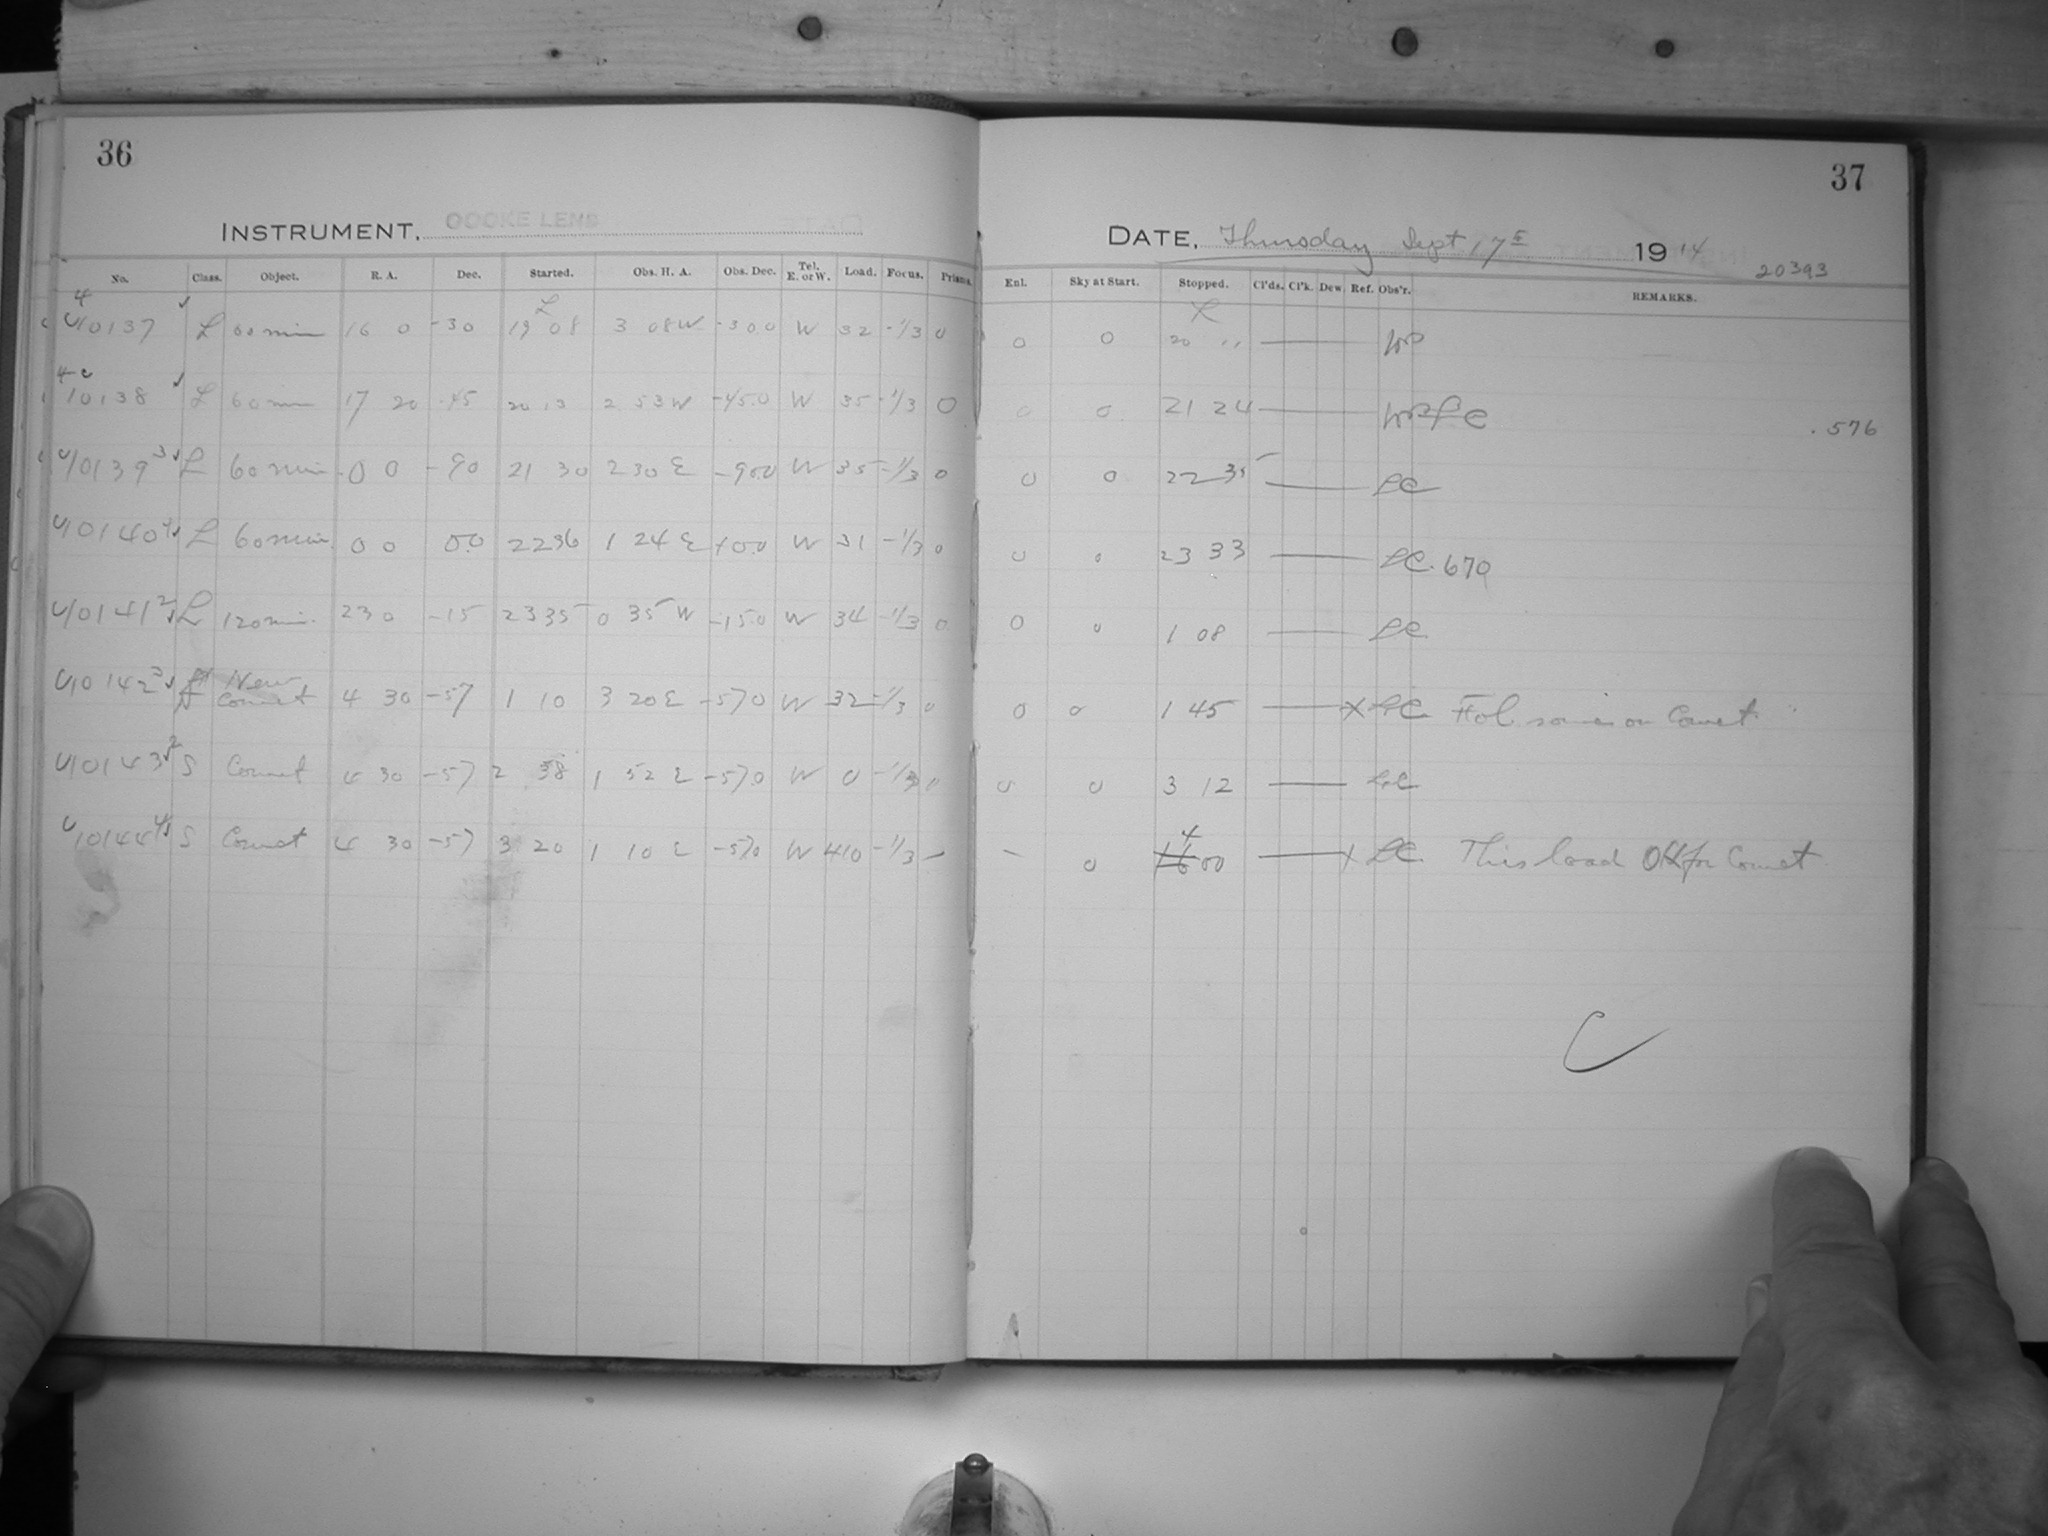 36
INSTRUMENT. COOKE LENS
No. Class. Object. R. A. Dec. Started. Obs. H. A. Obs. Dec. Tel. E. or W. Load. Focus. Prisms.
4
10137 L 60 min 16 0 -30 19 08 3 08 W -30.0 W 32 -1/3 0
4
10138 L 60 min 17 20 -45 20 13 2 53 W -45.0 W 35 -1/3 0
10139 3 L 60 min 0 0 -90 21 30 2 30 E -90.0 W 35 -1/3 0
10140 4 L 60 min 0 0 0.0 22 36 1 24 E +0.0 W 31 -1/3 0
10141 2 L 120 min. 23 0 -15 23 35 0 35 W -15.0 W 34 -1/3 0
10142 3 New Comet 4 30 -57 1 10 3 20 E -57.0 W 32 -1/3 0
10143 2 S Comet 4 30 -57 2 38 1 52 E -57.0 W 0 -1/3 0
10144 4 S Comet 4 30 -57 3 20 1 10 E -57.0 W 410 -1/3 –
37
DATE, Thursday Sept 17th 1914
20393
Enl. Sky at Start. Stopped. Cl'ds. Cl'k. Dew Ref. Obs'r. REMARKS.
0 0 20 11 —
0 0 21 24 — .576
0 0 22 35 — LC
0 0 23 33 — LC. 670
0 0 1 08 — LC
0 0 1 45 — X LC Fol. on Comet
0 0 3 12 — LC
– 0 4 00 — X LC. This load OK for Comet
C